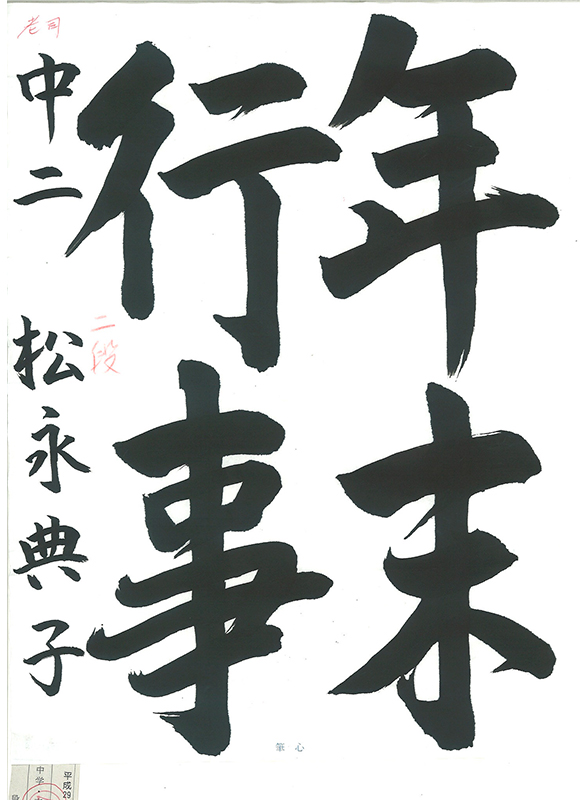 年末
行事
中二 松永典子
二段
老司
心筆
平成29
中学